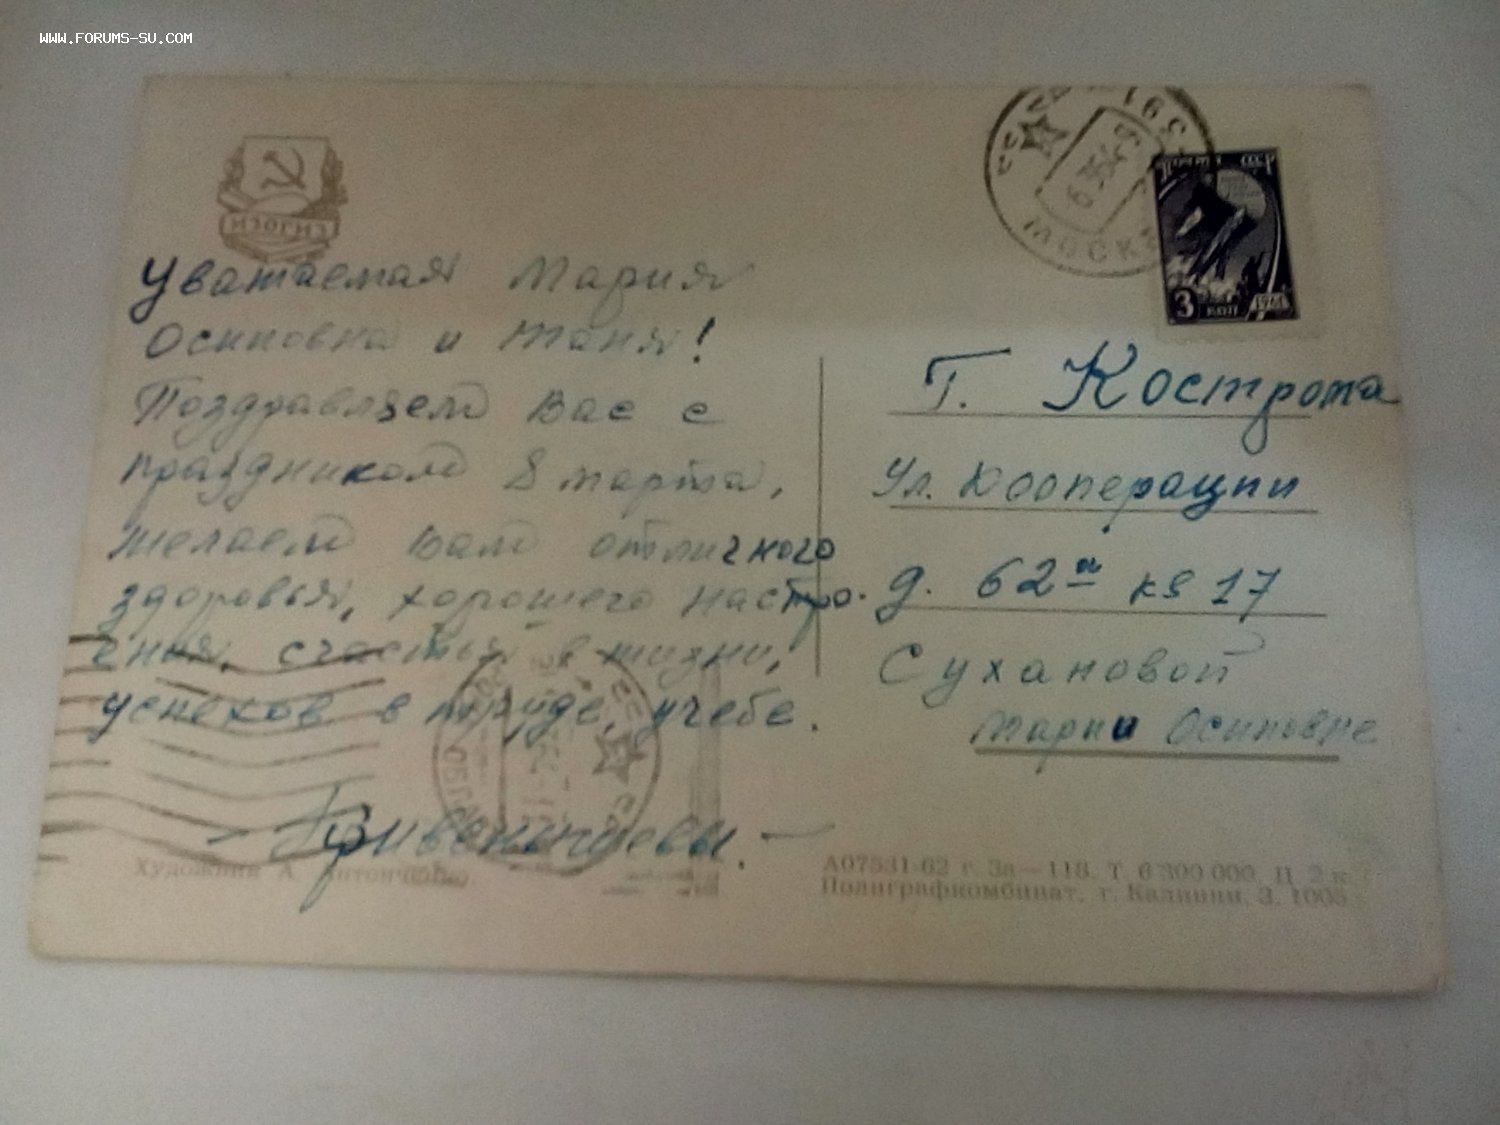 WWW.FORUMS-SU.COM
ИЗОГИЗ
Уважаемая Мария
Осиповна и Таня!
Поздравляем Вас с
праздником 8 марта,
желаем Вам отличного
здоровья, хорошего настро-
ения, счастья в жизни,
успехов в труде, учебе.
Художник А. Антонченко
МОСКВА
ПОЧТА СССР
3 КОП 1961
г. Кострома
ул. Кооперации
д. 62а кв 17
Сухановой
Марии Осиповне
А07531-62 г. Зв—118. Т. 6 300 000. Ц. 2 к.
Полиграфкомбинат, г. Калинин, З. 1005